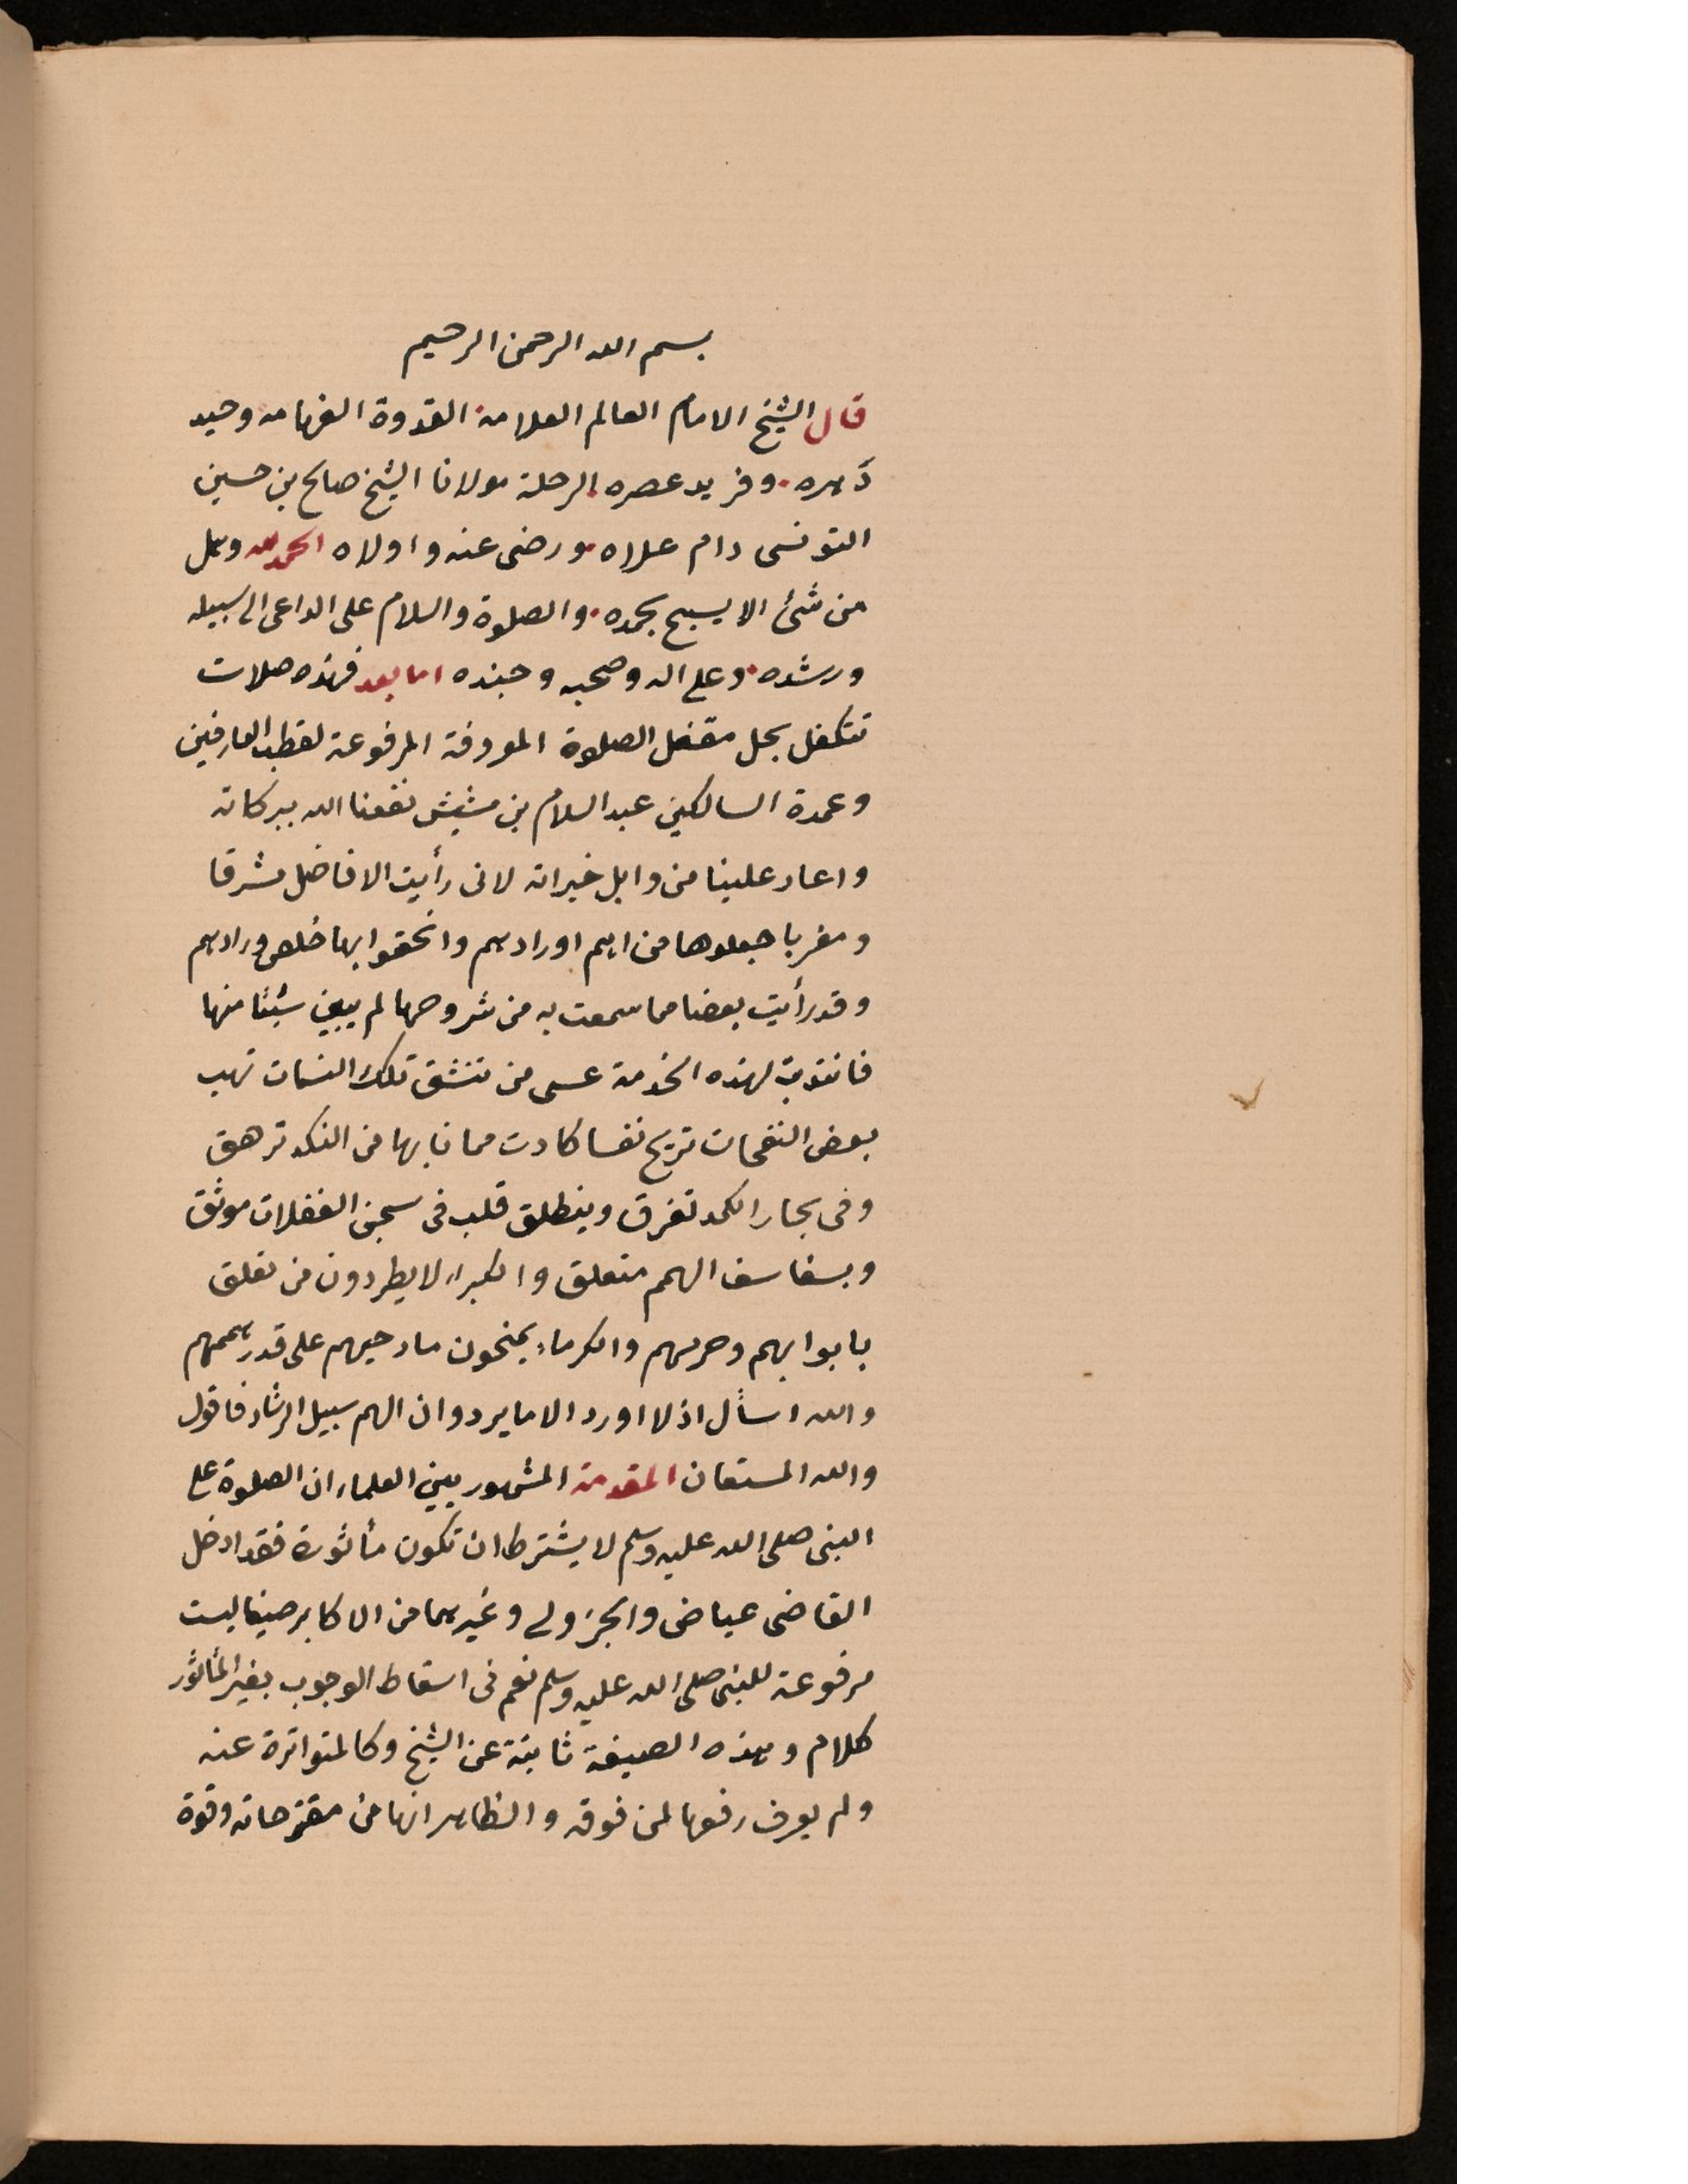 بسم الله الرحمن الرحيم
قال الشيخ الامام العالم العلامة القدوة الفهامه وحيد
دهره وفريد عصره الرحلة مولانا الشيخ صالح بن حسين
التونسى دام علاه ورضى عنه واولاه الحمد لله وهل
من شئ الا يسبح بحمده والصلوة والسلام على الداعى الى سبيله
ورشده وعلى اله وصحبه وجنده اما بعد فهذه صلات
تتكفل بحل مقفل الصلوة المعروفة المرفوعة لقطب العارفين
وعمدة السالكين عبد السلام بن مشيش نفعنا الله ببركاته
واعاد علينا من وابل خيراته لانى رأيت الافاضل مشرقا
ومغربا جعلوها من اهم اورادهم واتحفوا بها خلص ورادهم
وقد رأيت بعضا مما سمعت به من شروحها لم يبين شيئا منها
فانتدبت لهذه الخدمة عسى من تنشق تلك النسمات تهب
بعض النفحات تريح نفسا كادت مما نابها من النكد تزهق
وفى بحار الكمد تغرق وينطلق قلب فى سجن الغفلات موثق
وبسفاسف الهمم متعلق والكبراء لا يطردون من تعلق
بابوابهم وحرمهم والكرماء يمنحون مادحيهم على قدر هممهم
والله اسأل ان لا اورد الا ما يرد وان الهم سبيل الرشاد فاقول
والله المستعان المقدمة المشهور بين العلماء ان الصلوة على
النبى صلى الله عليه وسلم لا يشترط ان تكون مأثورة فقد ادخل
القاضى عياض والجزولى وغيرهما من الاكابر صيغا ليست
مرفوعة للنبى صلى الله عليه وسلم نعم فى اسقاط الوجوب بغير المأثور
كلام وهذه الصيغة ثابتة عن الشيخ وكالمتواترة عنه
ولم يعرف رفعها لمن فوقه والظاهر انها من مقترحاته وقوة